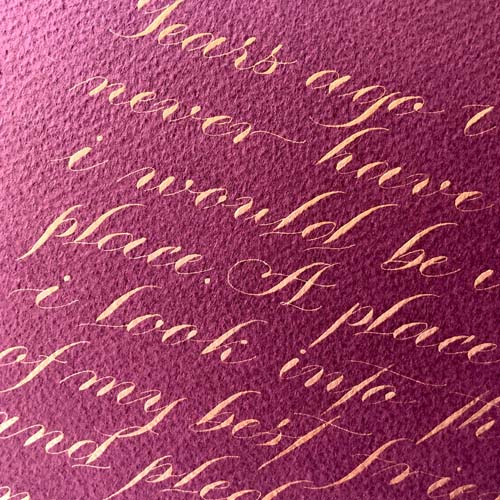 Years ago,
never have
i would be
place. A place
i look into
of my best
and